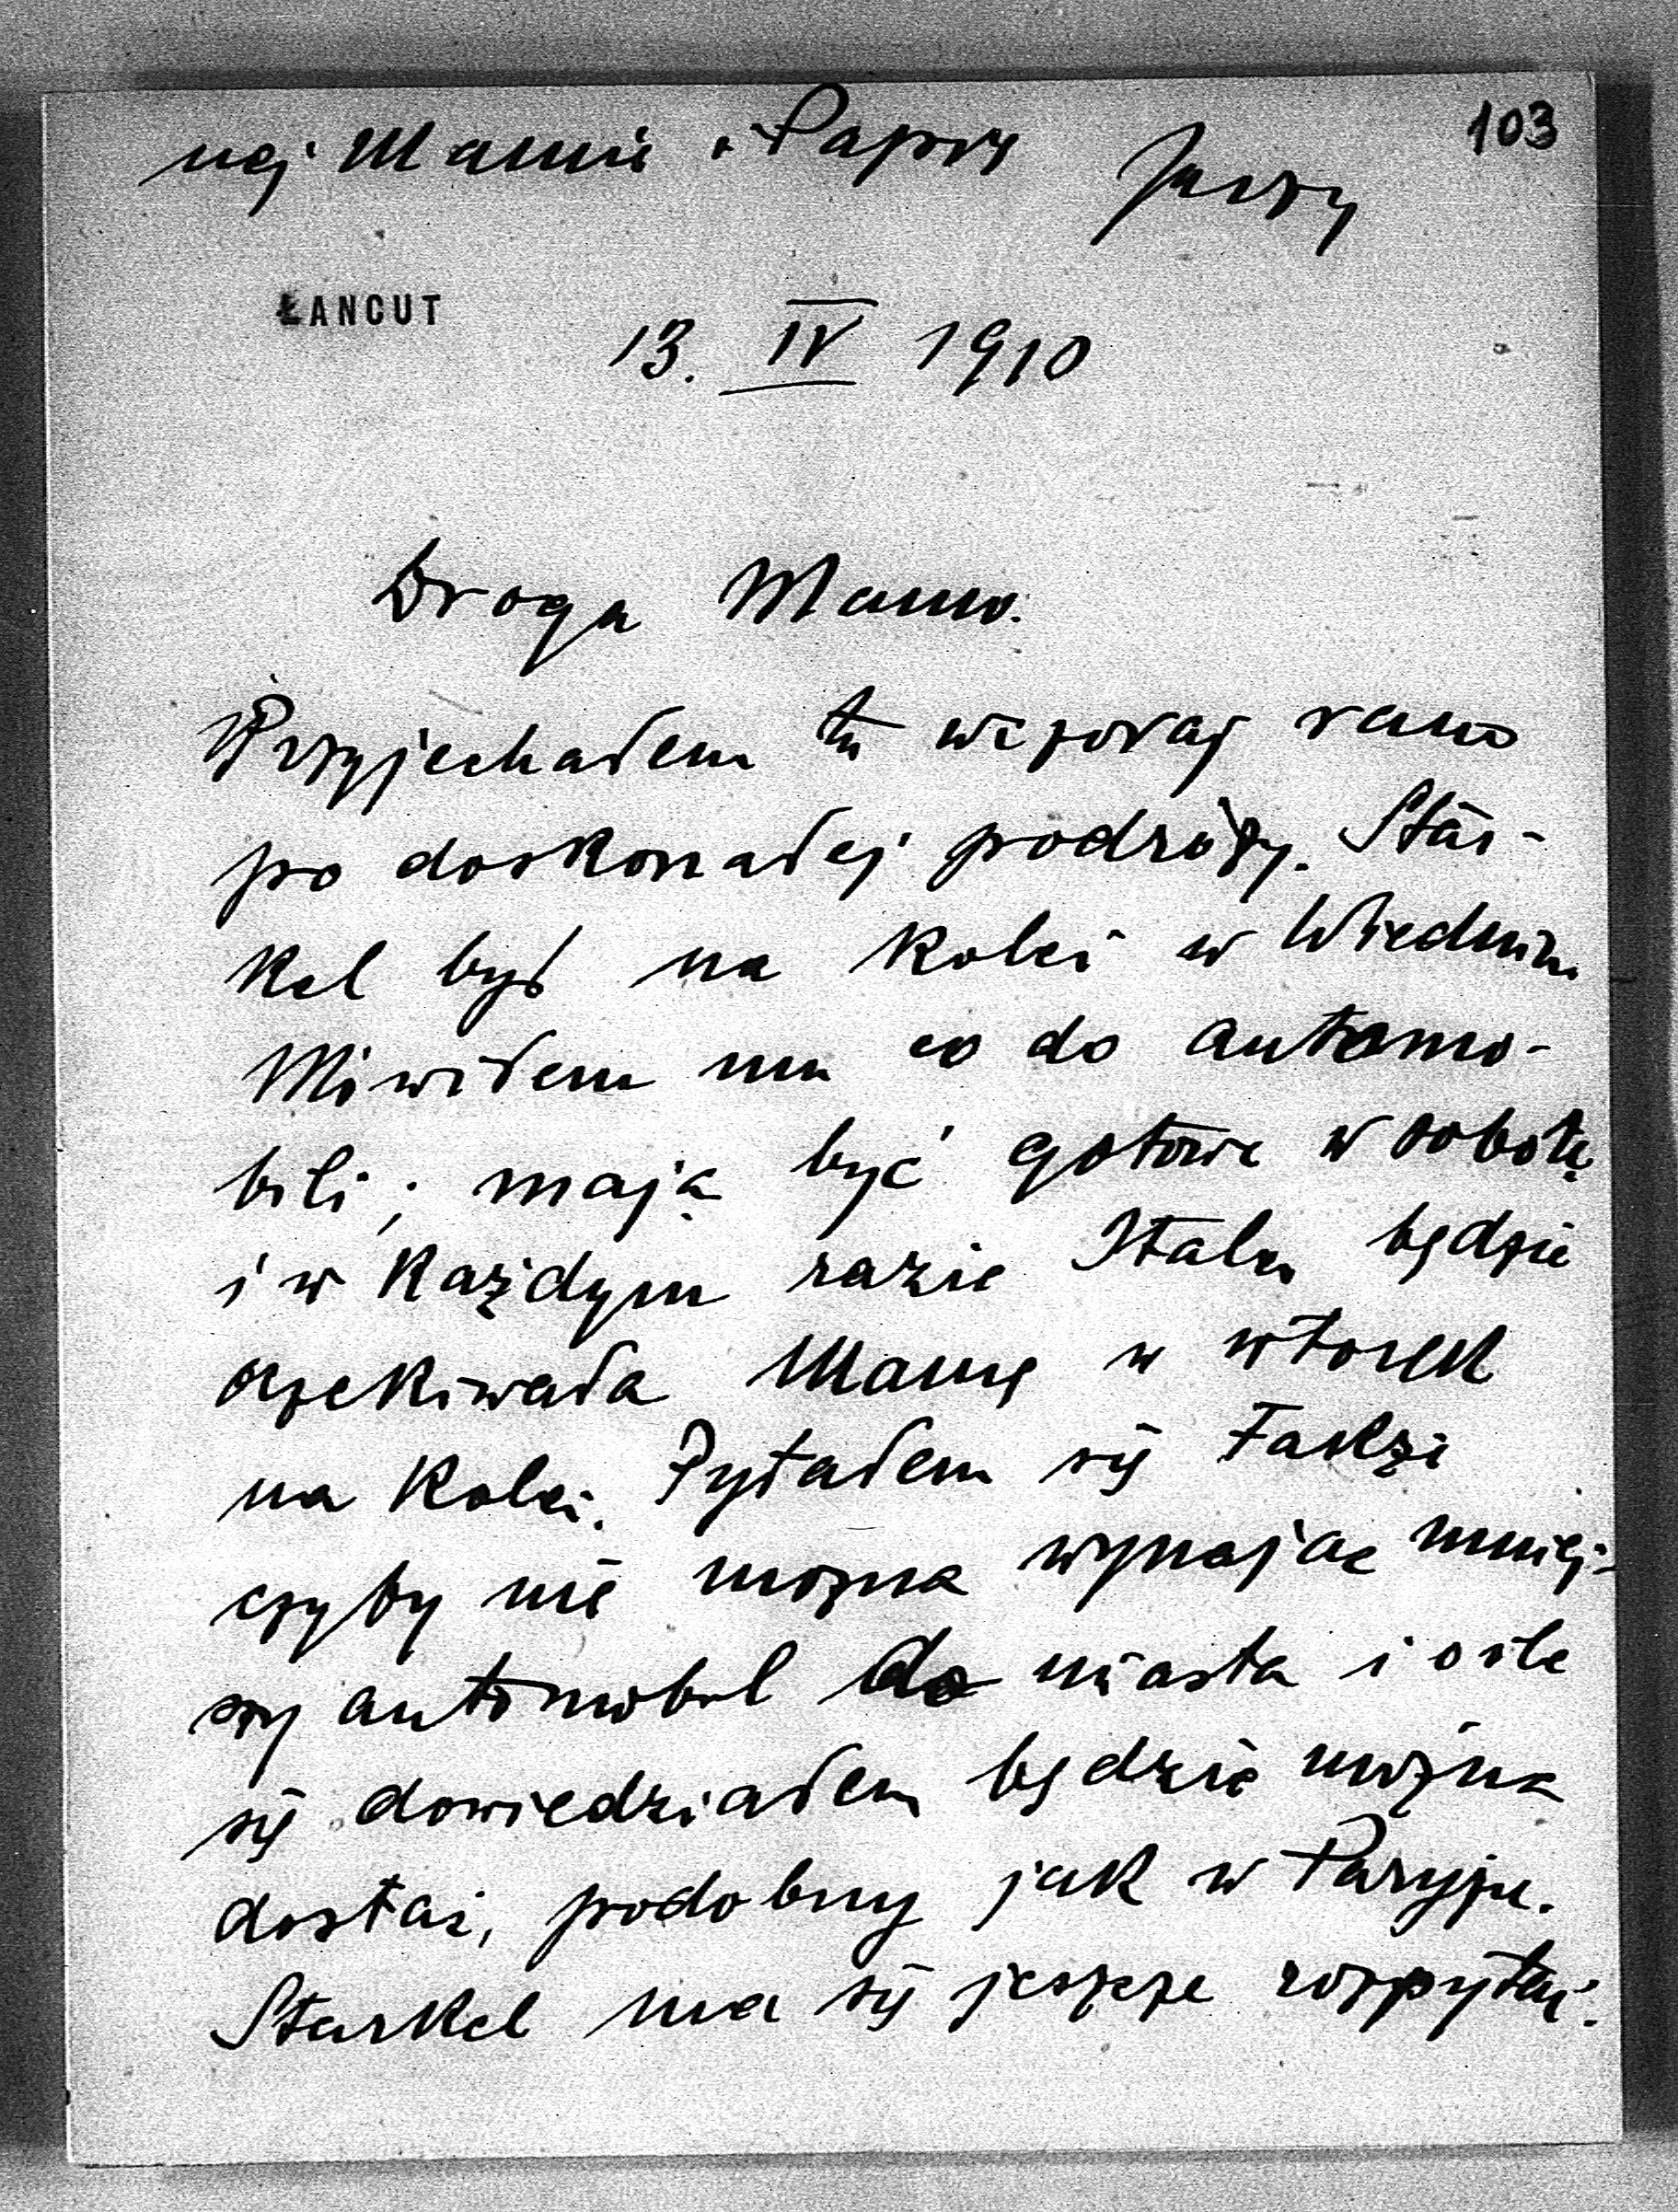 103
nej Mamie i Papie Jerzy
ŁANCUT
13. IV 1910
Droga Mamo.
Przyjechałem tu wczoraj rano
po doskonałej podróży. Star-
kel był na kolei w Wiedniu
Mówiłem mu co do automo-
bili; mają być gotowe w sobotę
i w każdym razie Itala będzie
oczekiwała Mamę w wtorek
na kolei. Pytałem się także
czyby nie można wynająć mniej-
szy automobil do miasta i o ile
się dowiedziałem będzie można
dostać, podobny jak w Paryżu.
Starkel ma się jeszcze rozpytać.